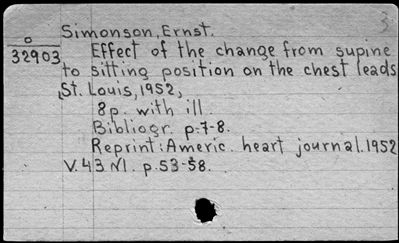 3
Simonson, Ernst.
O
32903
Effect of the change from supine
to sitting position on the chest leads
St. Louis, 1952,
8p. with ill.
Bibliogr. p. 7-8.
Reprint: Americ. heart journal. 1952
V. 43 N1. p. 53-58.